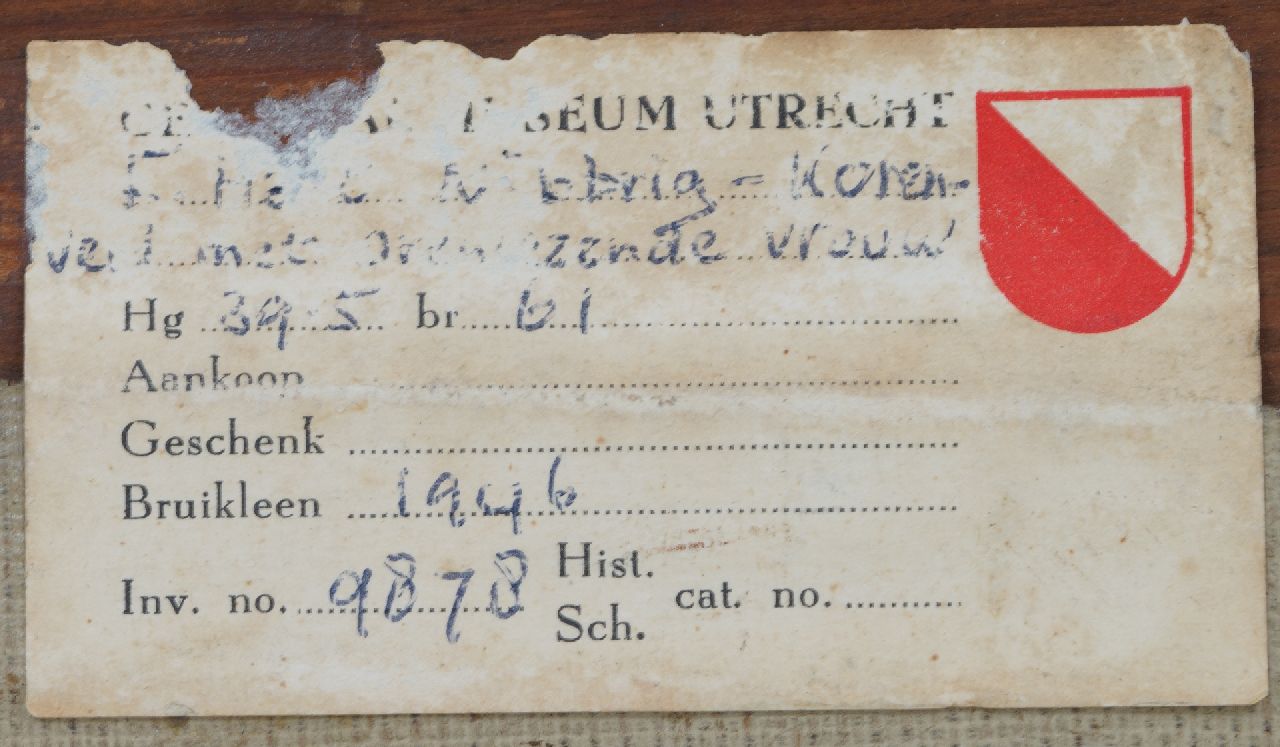 MUSEUM UTRECHT
Koren-
met vrouw
Hg 39.5 br 61
Aankoop
Geschenk
Bruikleen 1946
Inv. no. 9878 Hist. Sch. cat. no.